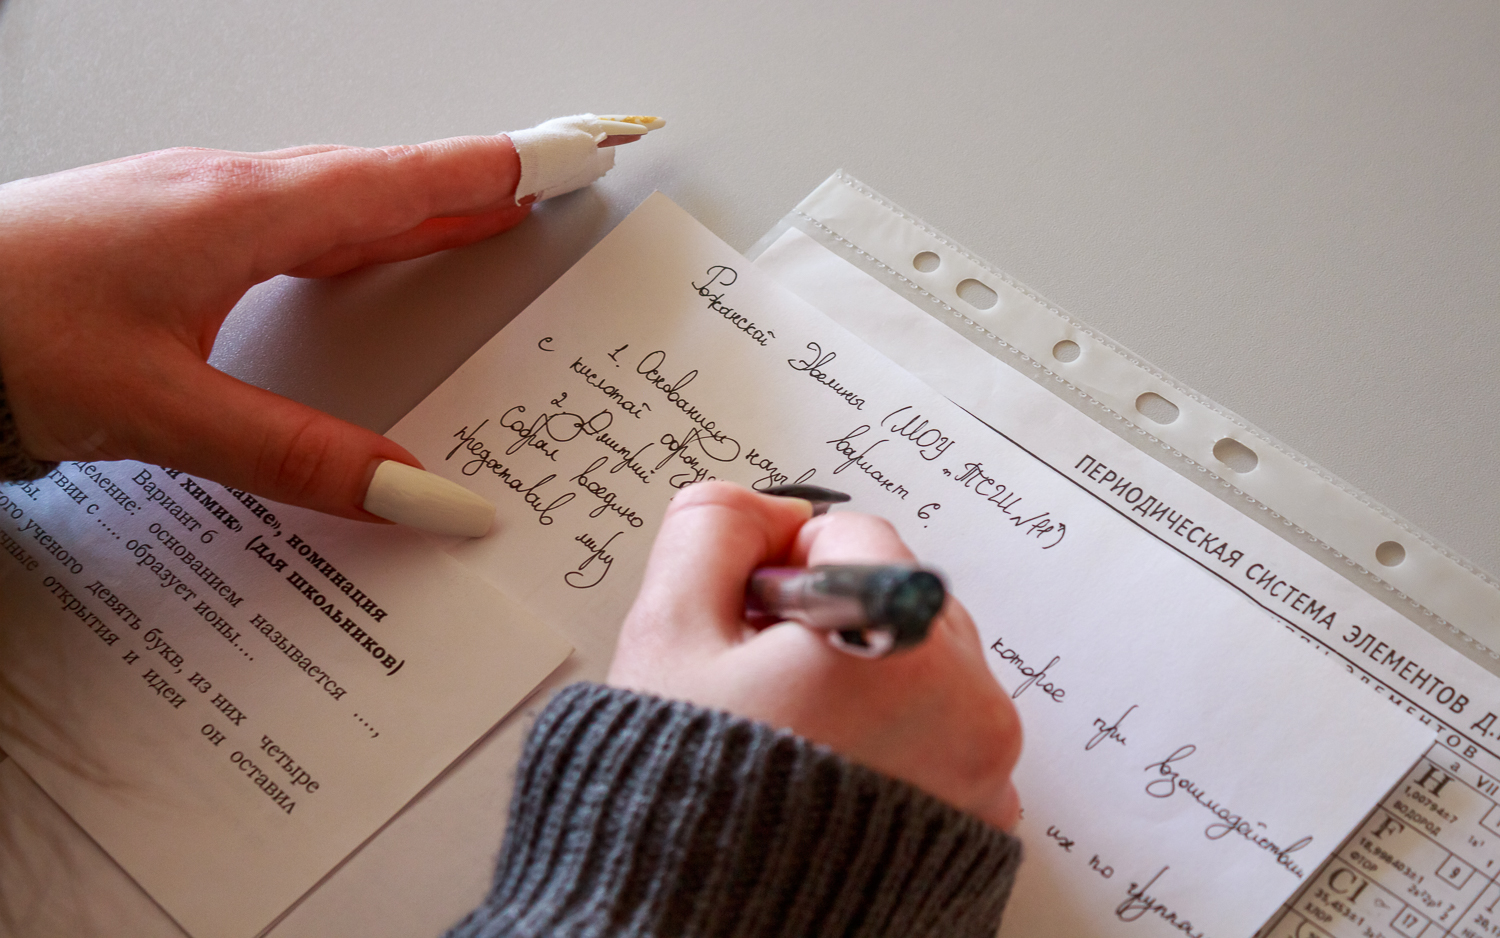 Рожанской Эвелины (МОУ "ТСШ №14")
вариант 6.
1. Основанием назыв которое при взаимодействии
с кислотой образу
2. Дмитрий
собрал воедино их по группам
предоставив миру
дание», номинация
й химик» (для школьников)
Вариант 6
деление: основанием называется ....,
твии с .... образует ионы....
ого ученого девять букв, из них четыре
чные открытия и идеи он оставил
ПЕРИОДИЧЕСКАЯ СИСТЕМА ЭЛЕМЕНТОВ Д.
ЭЛЕМЕНТОВ
а VII
H
1,00794±7
ВОДОРОД
1s¹
F
9
18,998403±1
ФТОР
2s²2p⁵
Cl
17
35,453±1
ХЛОР